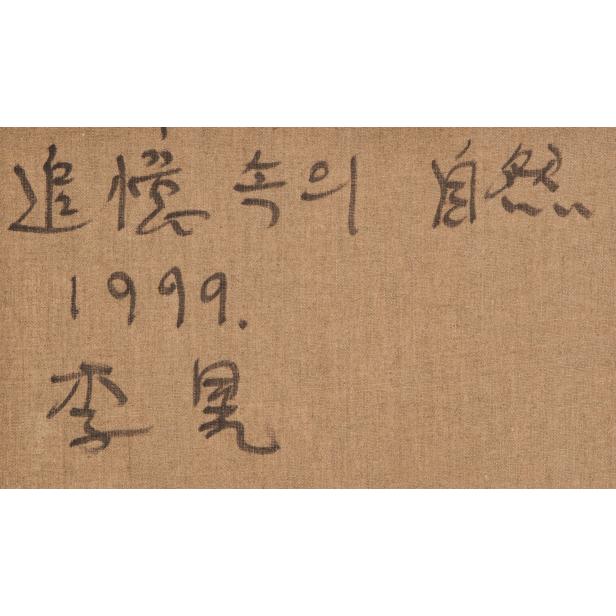 追憶 속의 自然
1999.
李 晃